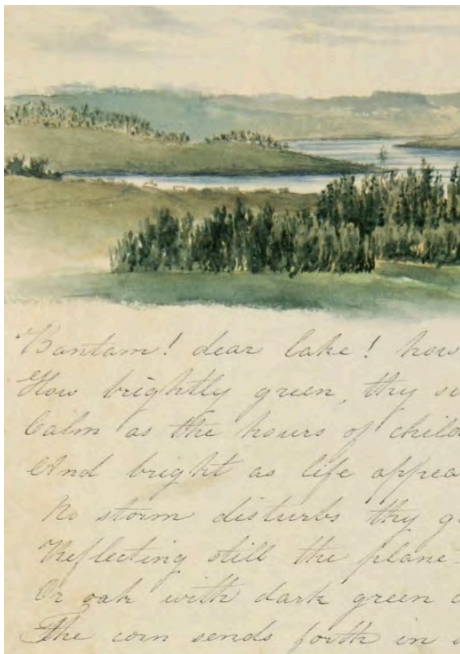 Bantam! dear lake! how
How brightly green, thy
Calm as the hours of
And bright as life
No storm disturbs thy
Reflecting still the plane
Or oak with dark green
The corn sends forth in